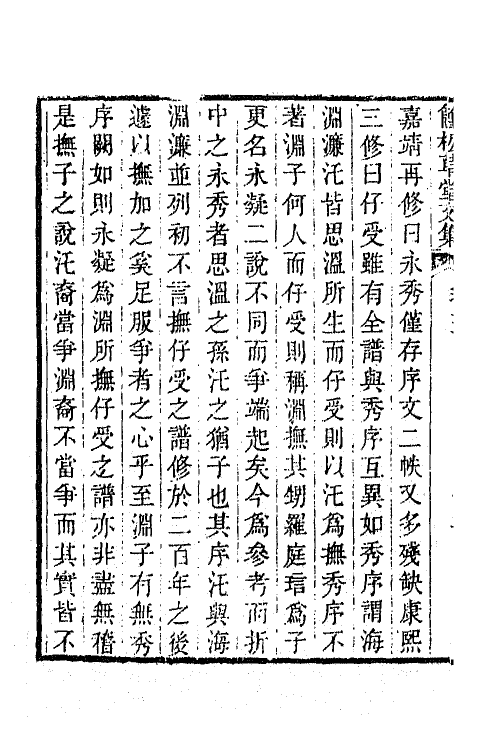 嘉靖再修曰永秀僅存序文二帙又多殘缺康熙
三修曰仔受雖有全譜與秀序互異如秀序謂海
淵濂汑皆思溫所生而仔受則以汑為撫秀序不
著淵子何人而仔受則稱淵撫其甥羅庭琂為子
更名永凝二說不同而爭端起矣今為參考而折
中之永秀者思溫之孫汑之猶子也其序汑與海
淵濂並列初不言撫仔受之譜修於二百年之後
遽以撫加之奚足服爭者之心乎至淵子有無秀
序闕如則永凝為淵所撫仔受之譜亦非盡無稽
是撫子之說汑裔當爭淵裔不當爭而其實皆不